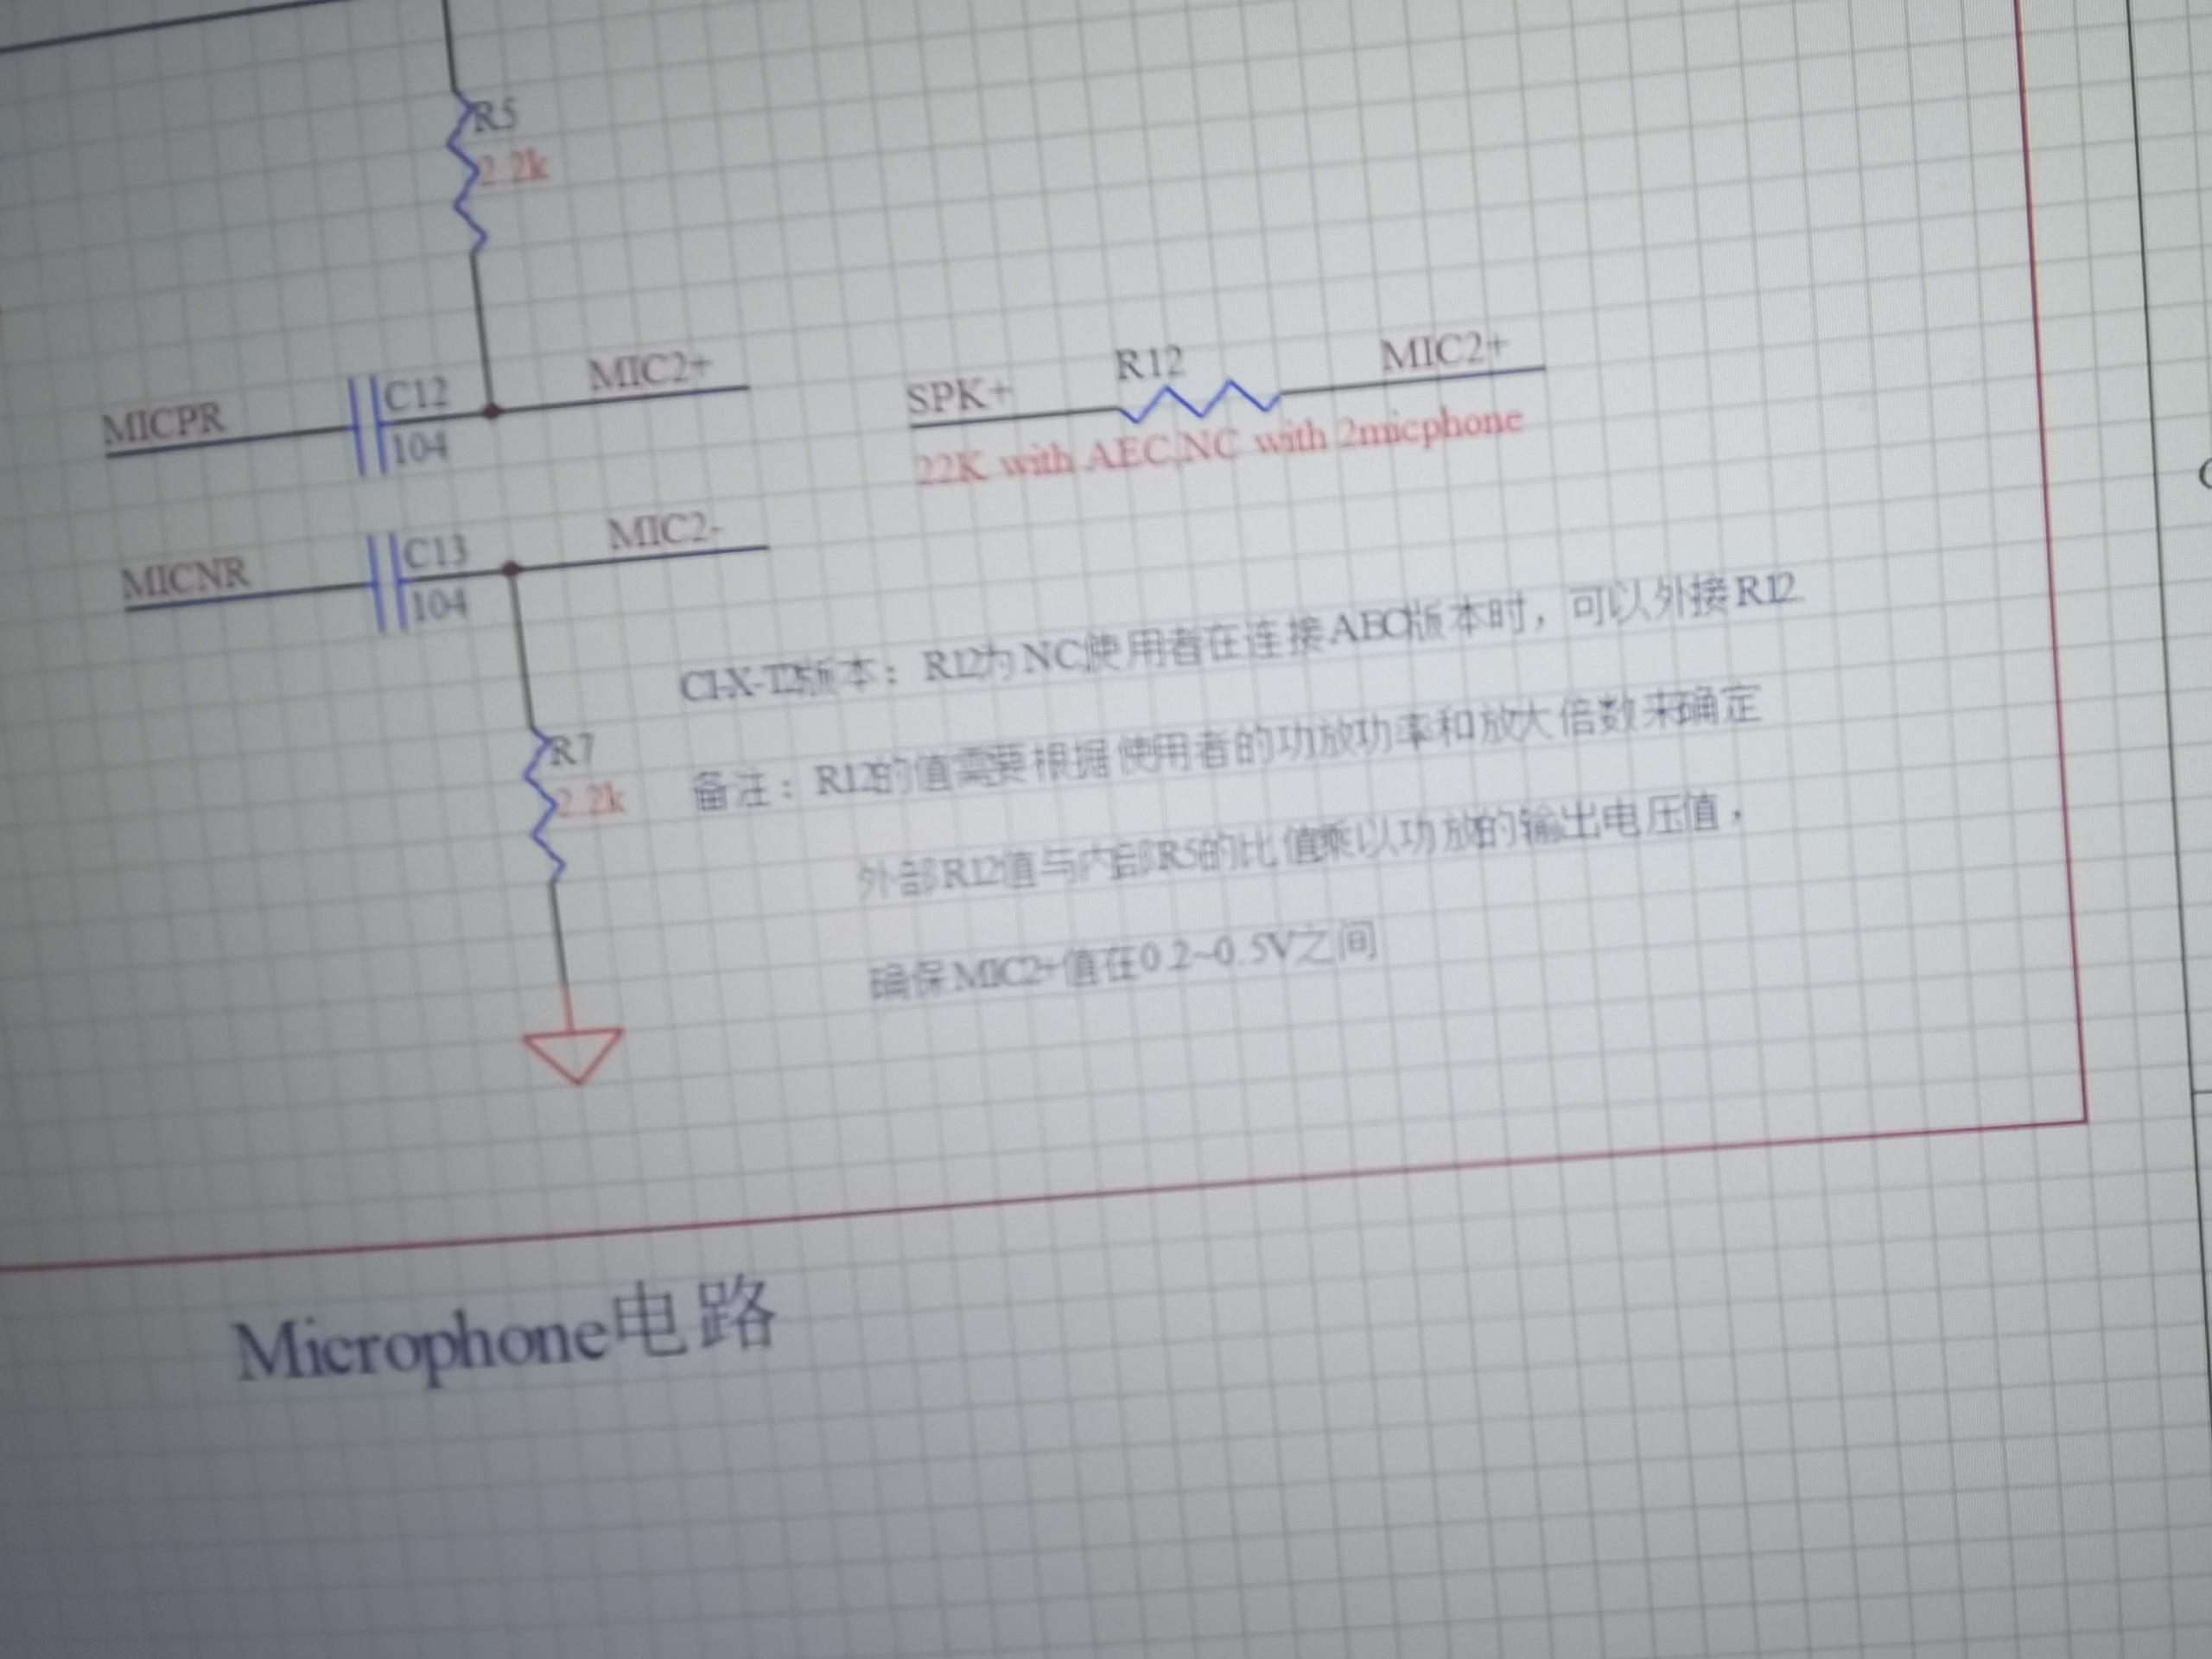 R5
2.2k
MICPR
C12
104
MIC2+
SPK+
R12
MIC2+
22K with AEC,NC with 2micphone
MICNR
C13
104
MIC2-
CI-X-T2版本：R12为NC,使用者在连接AEC版本时，可以外接R12
R7
2.2k
备注：R12的值需要根据使用者的功放功率和放大倍数来确定
外部R12值与内部R5的比值乘以功放的输出电压值，
确保MIC2+值在0.2~0.5V之间
Microphone电路